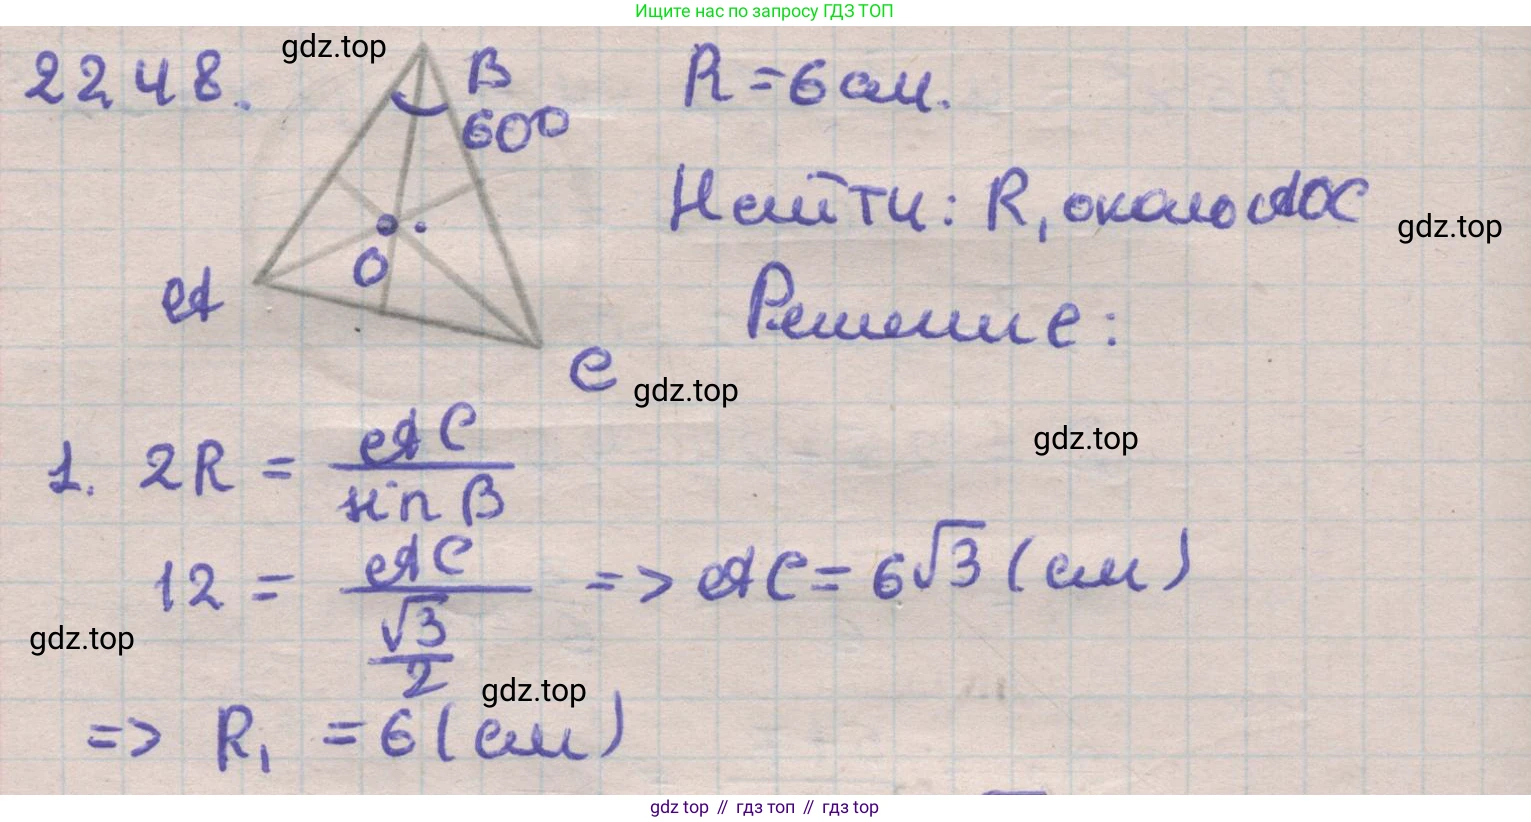 Ищите нас по запросу ГДЗ ТОП
22.48.
gdz.top
B
60°
O
A
C
R = 6 см.
Найти: R₁ около AOC
gdz.top
Решение:
gdz.top
gdz.top
1. 2R = AC / sin B
12 = AC / (√3 / 2) => AC = 6√3 (см)
gdz.top
gdz.top
=> R₁ = 6 (см)
gdz top // гдз топ // гдз top